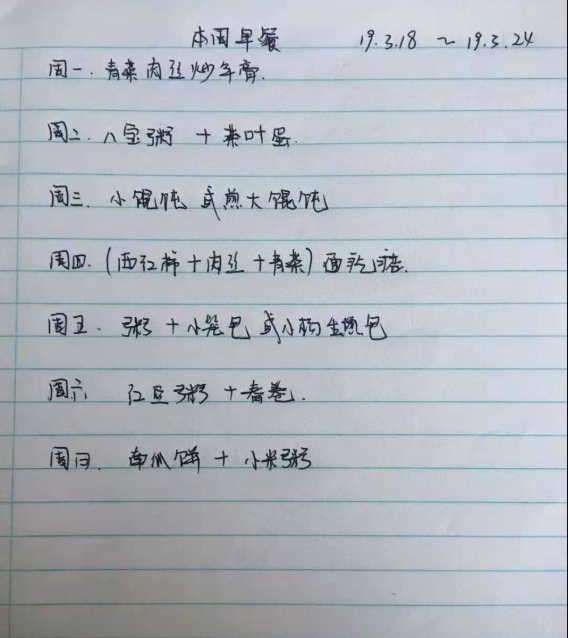 本周早餐 19.3.18 ~ 19.3.24
周一. 青菜肉丝炒年膏.
周二. 八宝粥 + 茶叶蛋.
周三. 小馄饨 或煎大馄饨
周四. (西红柿+肉丝+青菜) 面疙瘩.
周五. 粥 + 小笼包 或小杨生煎包
周六 红豆粥 + 春卷.
周日. 南瓜饼 + 小米粥